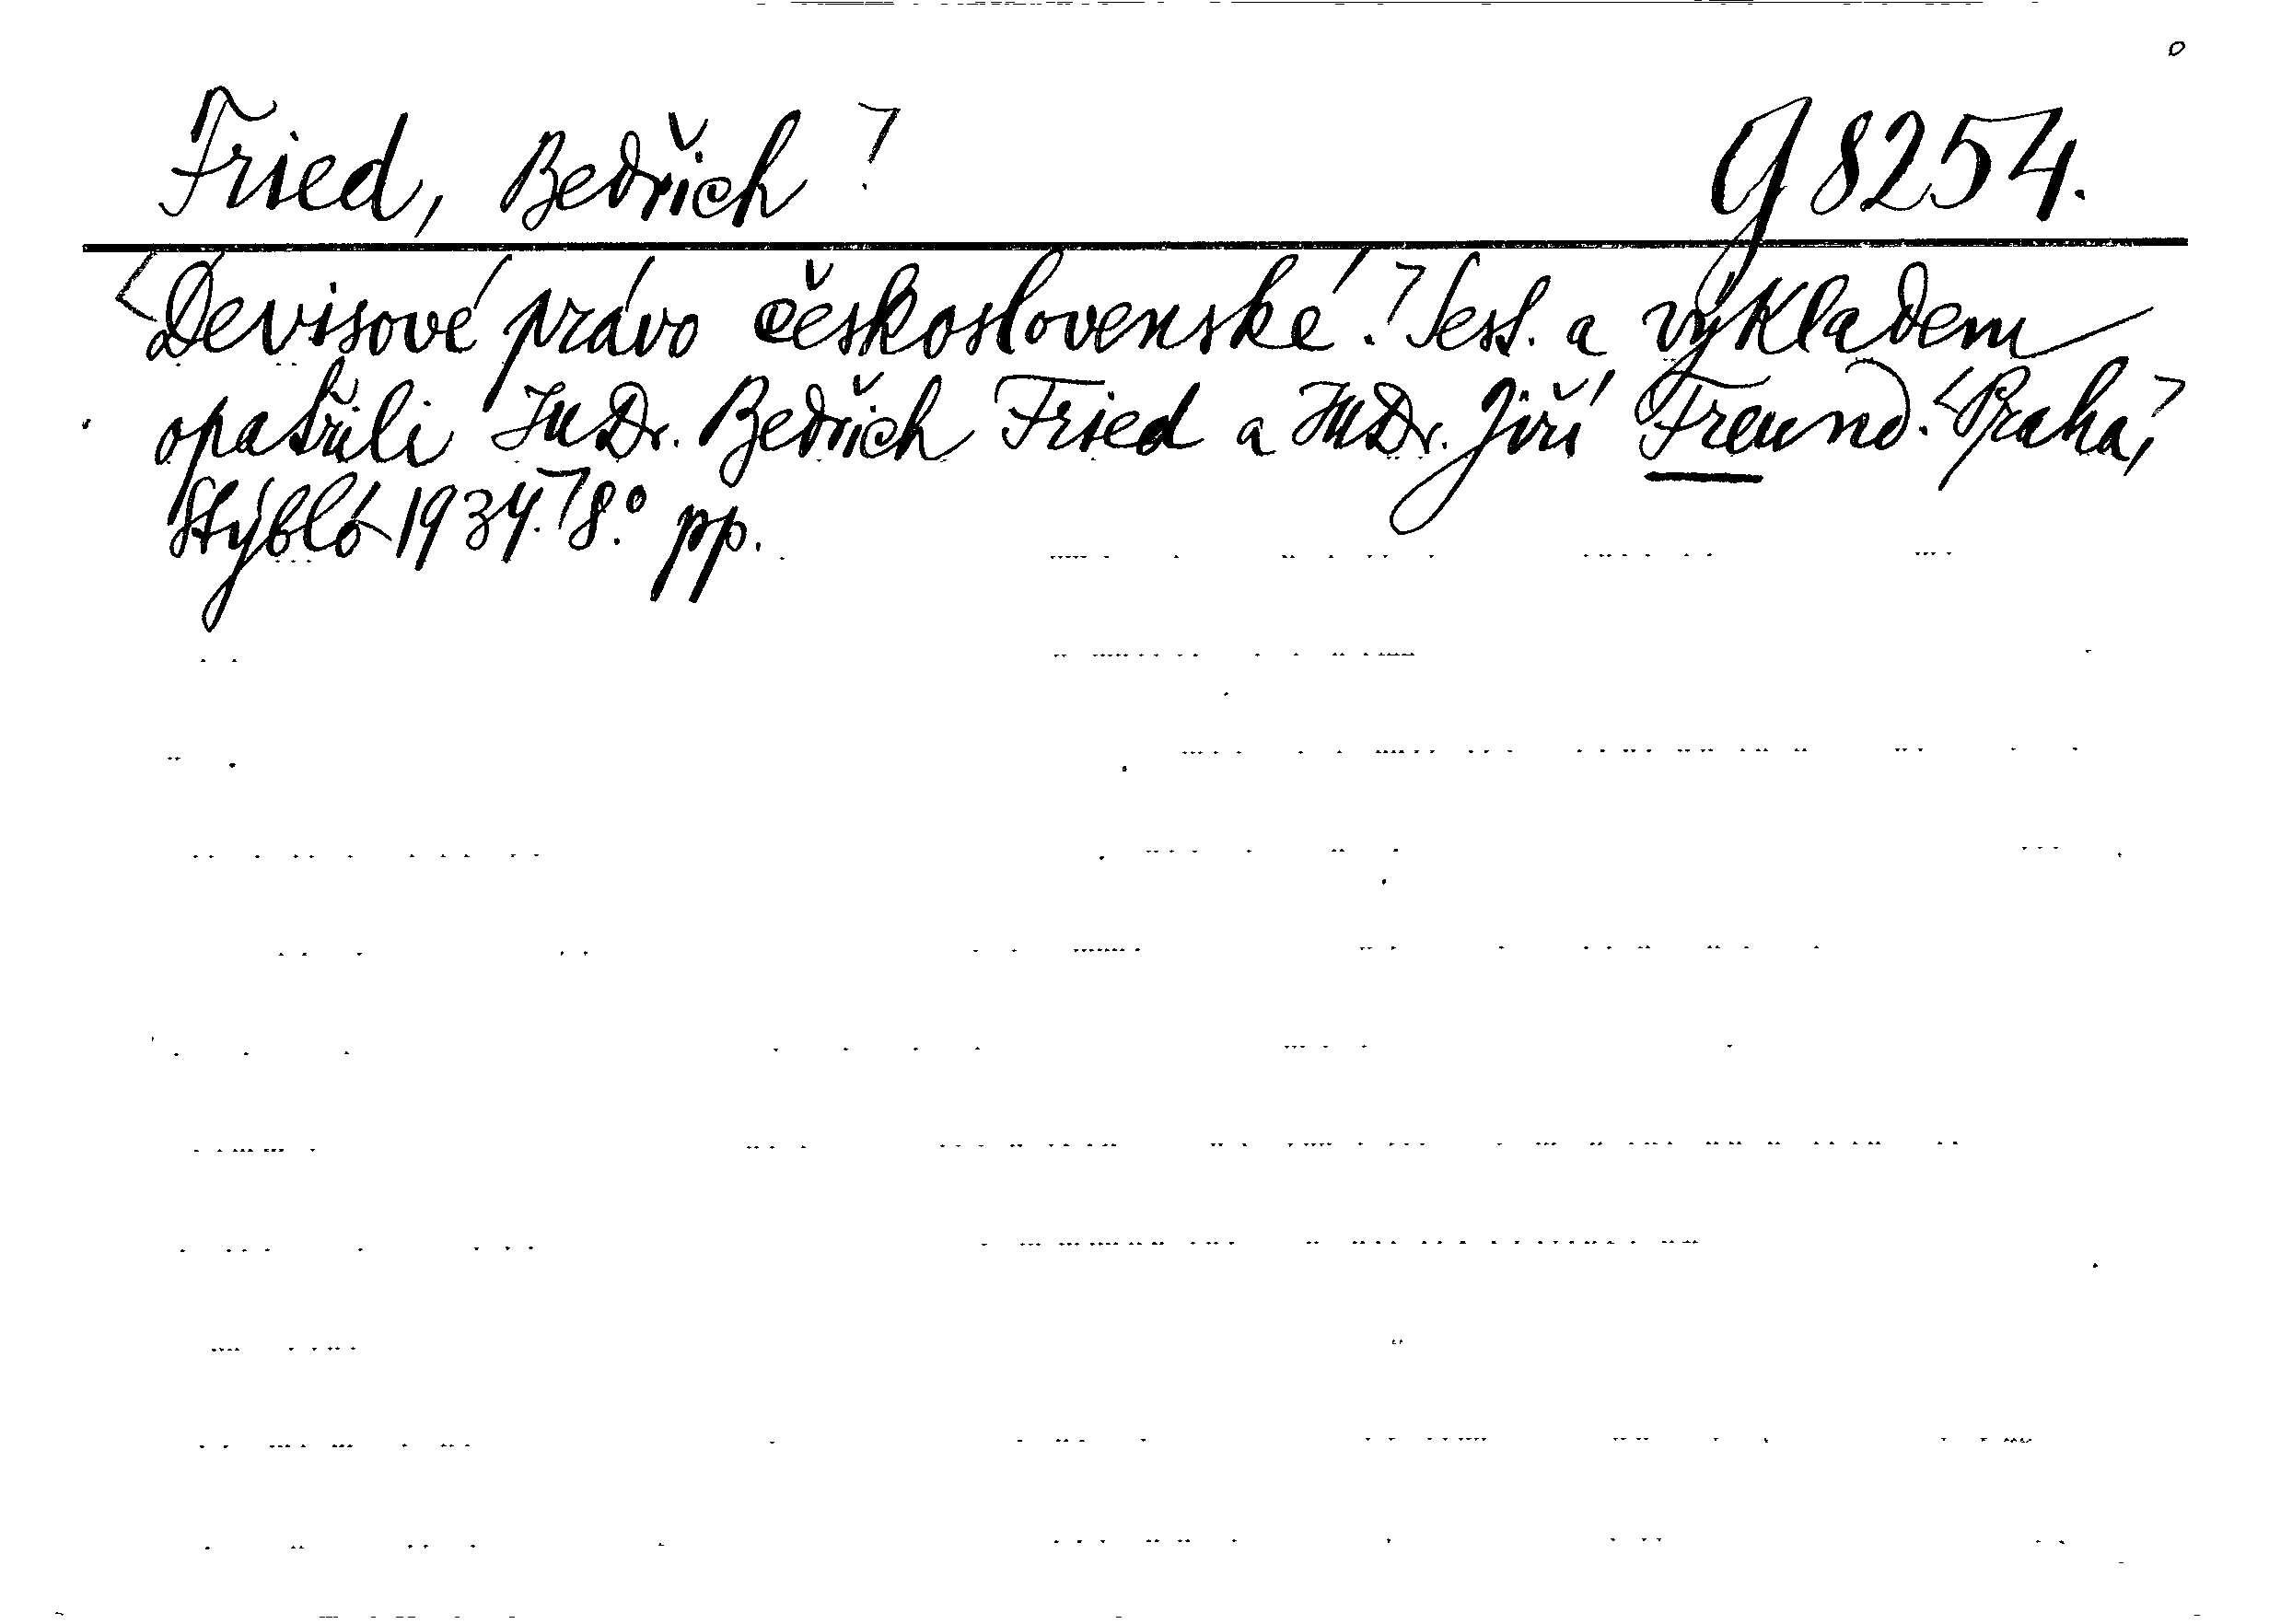 Fried, Bedřich G 8254.
Devisové právo československé. Sest. a výkladem
opatřili JUDr. Bedřich Fried a JUDr. Jiří Freund. Praha,
Stýbló 1934. 8° pp.